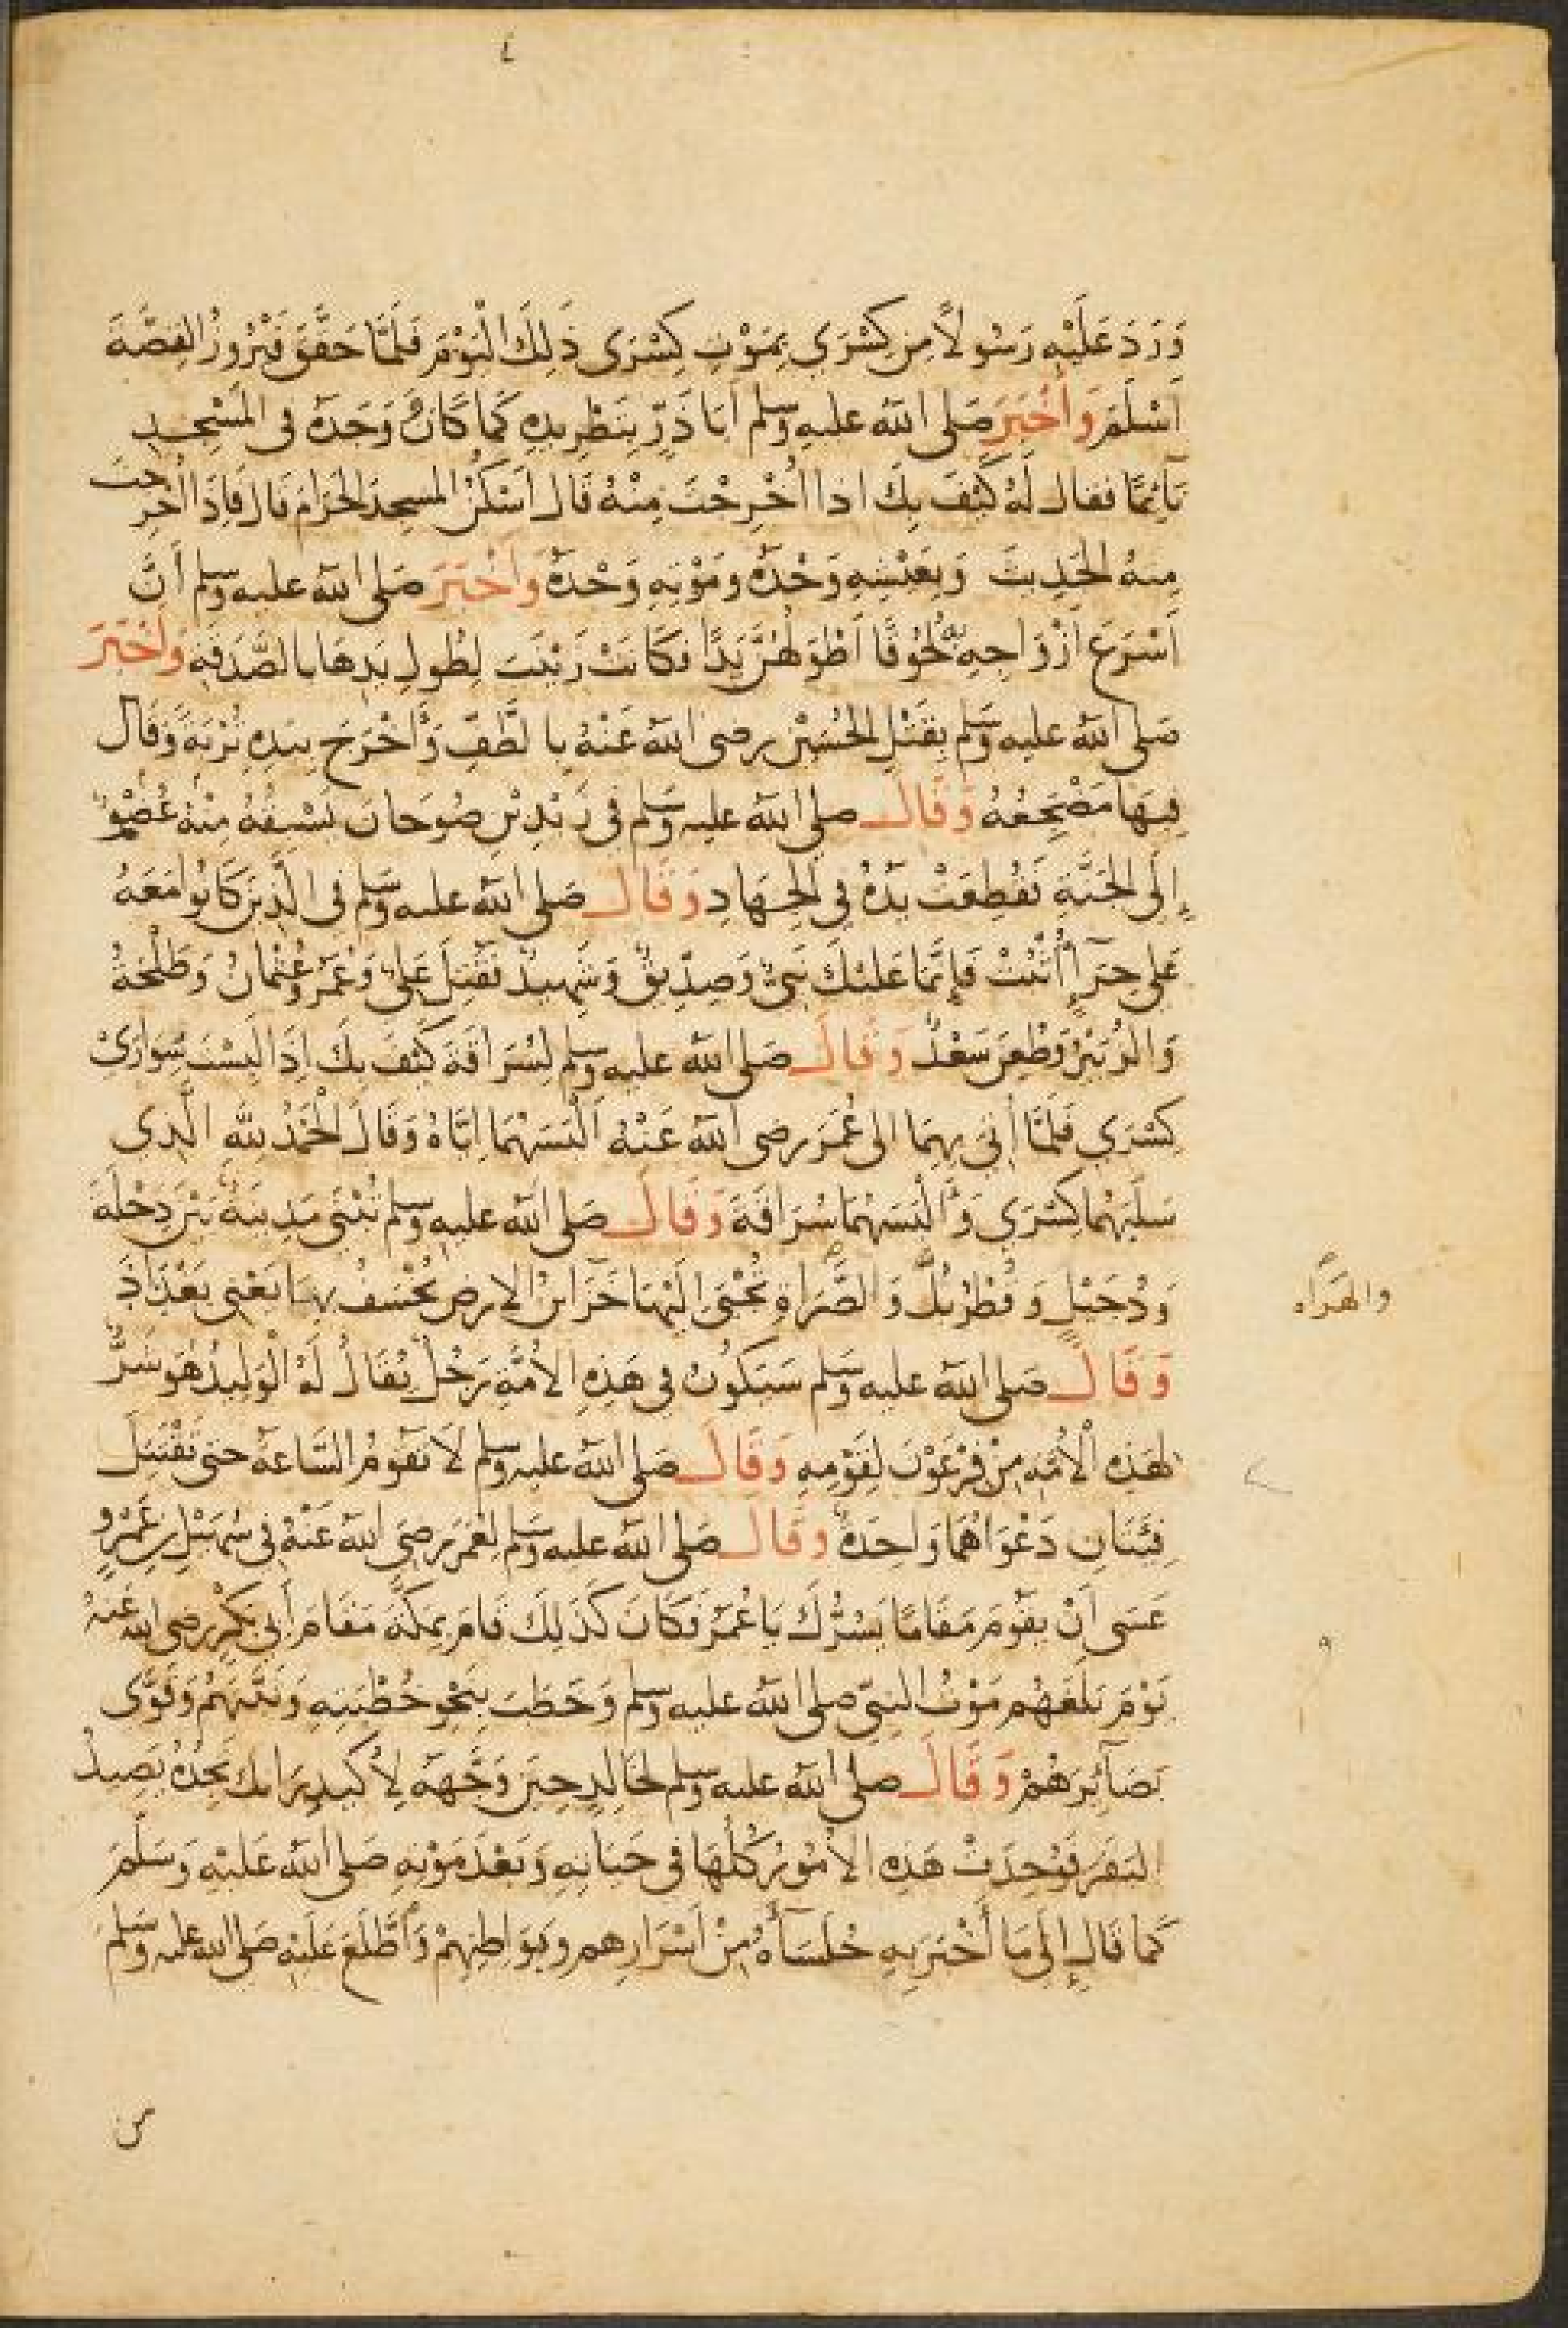 وَرَدَ عَلَيْهِ رَسُولاً مِن كِسْرَي بِمَوْتِ كِسْرَى ذَلِكَ الْيَوْمَ فَلَمَّا حَقَّقَ فَيْرُوزُ القِصَّةَ
اَسْلَمَ وَأَخْبَرَ صَلى الله عليه وسلم اَبَا ذَرٍّ بِتَطْرِيدِهِ كَمَا كَانَ وَوَجَدَهُ فى المَسْجِدِ
نَآئِمًا فقال لَهُ كَيْفَ بِكَ اذا اُخْرِجْتَ مِنْهُ قَال اَسْكُنُ المسجدَ الحَرَامَ قال فَاِذَا اُخْرِجتَ
مِنهُ الحَدِيثَ وَبِعَيْشِهِ وَحْدَهُ ومَوْتِهِ وَحْدَهُ وَأَخْبَرَ صَلى الله عليه وسلم اَنَّ
اَسْرَعَ ازْوَاجِهِ بِهِ لُحُوقًا اَطْوَلُهُنَّ يَدًا فكَانَتْ زَيْنَبَ لِطُولِ يَدِهَا بالصَّدَقَةِ وَأَخْبَرَ
صَلى الله عليه وسَلم بِقَتْلِ الْحُسَيْنِ رضى الله عَنْهُ بِا لطَّفِّ وَأَخْرَجَ بيَدِهِ تُرْبَةً وَقَال
فِيهَا مَضْجَعُهُ وَقَالَ صلى الله عليه وسَلم فى زَيْدِ بْنِ صُوحَانَ يَسْبِقُهُ مِنْهُ عُضْوٌ
إِلَى الجَنَّةِ فَقُطِعَتْ يَدُهُ فِي الْجِهَادِ وَقَالَ صَلى الله عليه وسَلم فى الَّذِينَ كَانُوا مَعَهُ
عَلَى حِرَآءٍ اُثْبُتْ فَإِنَّمَا عَلَيْكَ نَبِيٌّ وَصِدِّيقٌ وَشَهِيدٌ فَقُتِلَ عَلِيٌّ وَعُمَرُ وَعُثْمَانُ وَطَلْحَةُ
وَالزُّبَيْرُ وَطُعِنَ سَعْدٌ وَقَالَ صَلى الله عليه وسلم لِسُرَاقَةَ كَيْفَ بِكَ اِذَا اُلبِسْتَ سُوَارَىْ
كِسْرَي فَلَمَّا أُتِيَ بِهِمَا الى عُمَرَ رضى الله عَنْهُ اَلْبَسَهُمَا اِيَّاهُ وَقَالَ الْحَمْدُ لِلَّهِ الَّذِي
سَلَبَهُمَا كِسْرَي وَأَلْبَسَهُمَا سُرَاقَةَ وَقَالَ صَلى الله عليه وسلم تُبْنَى مَدِينَةٌ بَيْنَ دِجْلَةَ
وَدُجَيْلٍ وَقُطْرُبُلَّ وَالصَّرَاةِ تُجْبَى اِلَيْهَا خَزَائِنُ الارضِ يُخْسَفُ بِهَا يَعْنِى بَغْدَاذَ
والهَرَاه
وَقَالَ صَلى الله عليه وسَلم سَيَكُونُ فِي هَذِهِ الأُمَّةِ رَجُلٌ يُقَالُ لَهُ الْوَلِيدُ هُوَ شَرٌّ
لهَذِهِ الْأُمَّةِ مِنْ فِرْعَوْنَ لِقَوْمِهِ وَقَالَ صَلى الله عليه وسلم لَا تَقُومُ السَّاعَةُ حتى تَقْتَتِلَ
فِئَتَانِ دَعْوَاهُمَا وَاحِدَةٌ وَقَالَ صَلى الله عليه وسَلم لِعُمَرَ رضِىَ الله عَنْهُ فِي سُهَيْلِ بنِ عَمْرٍو
عَسَى اَنْ يقُومَ مَقَامًا يَسُرُّكَ يَا عُمَرُ فَكَانَ كَذَلِكَ قَامَ بِمَكَّةَ مَقَامَ أَبِي بَكْرٍ رضى الله عَنهُ
يَوْمَ بَلَغَهُم مَوْتُ النَّبِيِّ صلى الله عليه وسلم وَخَطَبَ بِنَحْوِ خُطْبَتِهِ وَثَبَّتَهُمْ وَقَوَّى
بَصَآئِرَهُمْ وَقَالَ صلى الله عليه وسلم لخَالِدٍ حِينَ وَجَّهَهُ لِأُكَيْدِرَ انك تَجِدُهُ يَصِيدُ
البَقَرَ فَوُجِدَتْ هَذِهِ الأُمُورُ كُلُّهَا فى حَيَاتِهِ وَبَعْدَ مَوْتِهِ صَلى الله عَلَيْهِ وَسَلَّمَ
كَمَا قَالَ إِلَى مَا أَخْبَرَ بِهِ جُلَسَآءَهُ مِنْ اَسْرَارِهِم وبَوَاطِنِهِمْ وَاَطَّلَعَ عَلَيْهِ صَلى الله عليه وسَلم
من